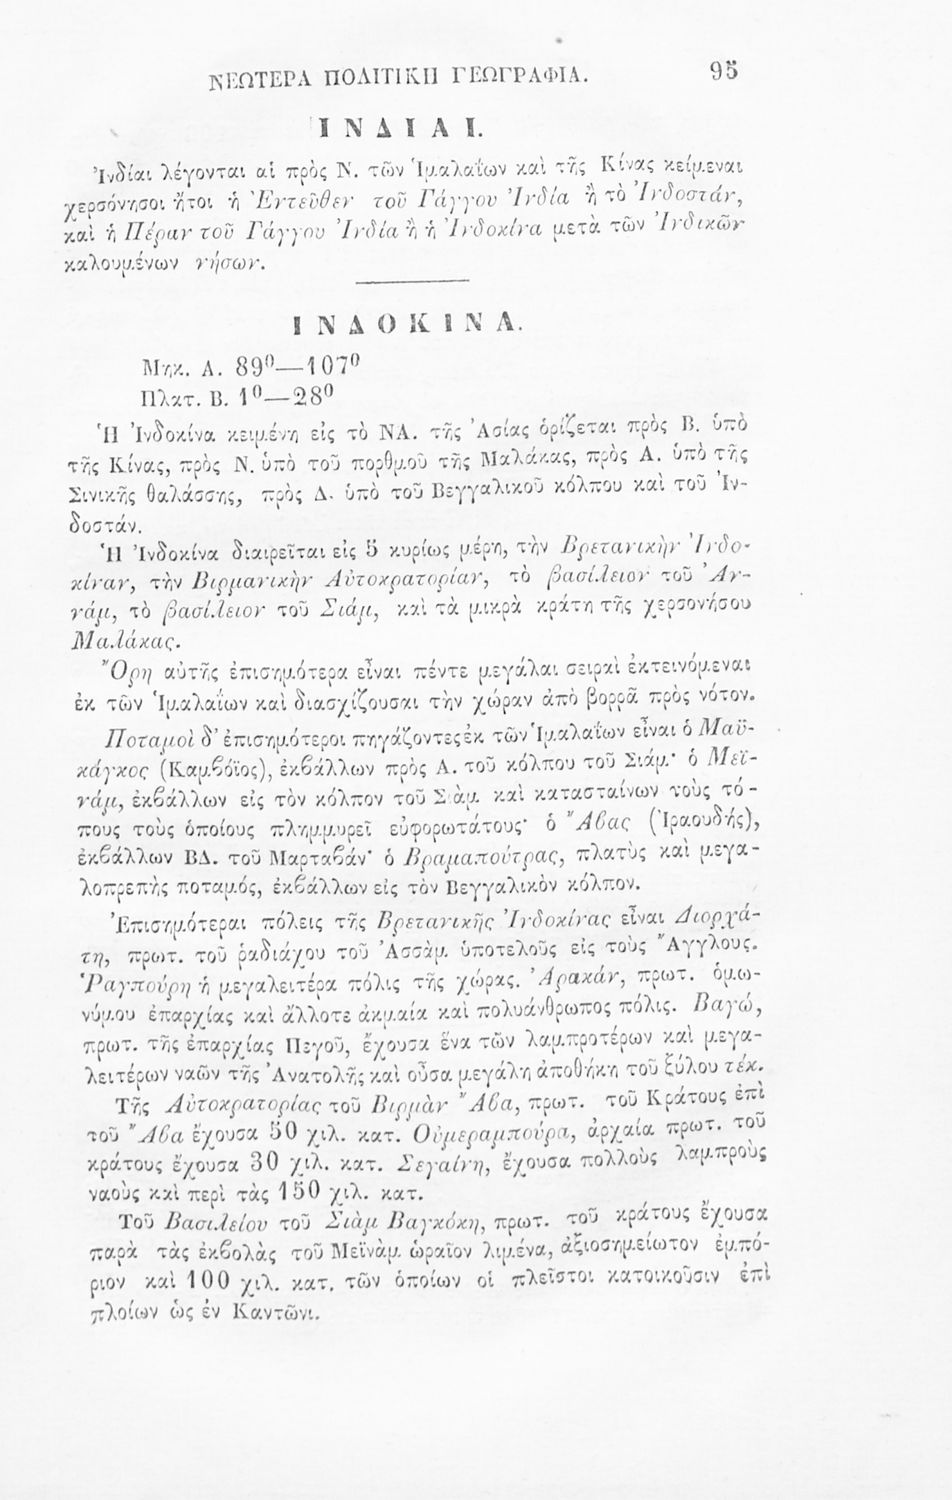 ΝΕΩΤΕΡΑ ΠΟΛΙΤΙΚΗ ΓΕΩΓΡΑΦΙΑ. 95
ΙΝΔΙΑΙ.
Ἰνδίαι λέγονται αἱ πρὸς Ν. τῶν Ἱμαλαΐων καὶ τῆς Κίνας κείμεναι
χερσόνησοι ἤτοι ἡ Ἐντεῦθεν τοῦ Γάγγου Ἰνδία ἢ τὸ Ἰνδοστάν,
καὶ ἡ Πέραν τοῦ Γάγγου Ἰνδία ἢ ἡ Ἰνδοκίνα μετὰ τῶν Ἰνδικῶν
καλουμένων νήσων.
ΙΝΔΟΚΙΝΑ.
Μηκ. Α. 89⁰—107⁰
Πλατ. Β. 1⁰—28⁰
Ἡ Ἰνδοκίνα κειμένη εἰς τὸ ΝΑ. τῆς Ἀσίας ὁρίζεται πρὸς Β. ὑπὸ
τῆς Κίνας, πρὸς Ν. ὑπὸ τοῦ πορθμοῦ τῆς Μαλάκας, πρὸς Α. ὑπὸ τῆς
Σινικῆς θαλάσσης, πρὸς Δ. ὑπὸ τοῦ Βεγγαλικοῦ κόλπου καὶ τοῦ Ἰν-
δοστάν.
Ἡ Ἰνδοκίνα διαιρεῖται εἰς 5 κυρίως μέρη, τὴν Βρετανικὴν Ἰνδο-
κίναν, τὴν Βιρμανικὴν Αὐτοκρατορίαν, τὸ βασίλειον τοῦ Ἀν-
νάμ, τὸ βασίλειον τοῦ Σιάμ, καὶ τὰ μικρὰ κράτη τῆς χερσονήσου
Μαλάκας.
Ὄρη αὐτῆς ἐπισημότερα εἶναι πέντε μεγάλαι σειραὶ ἐκτεινόμεναι
ἐκ τῶν Ἱμαλαΐων καὶ διασχίζουσαι τὴν χώραν ἀπὸ βορρᾶ πρὸς νότον.
Ποταμοὶ δ' ἐπισημότεροι πηγάζοντες ἐκ τῶν Ἱμαλαΐων εἶναι ὁ Μαϋ-
κάγκος (Καμβόϊος), ἐκβάλλων πρὸς Α. τοῦ κόλπου τοῦ Σιάμ· ὁ Μεϊ-
νάμ, ἐκβάλλων εἰς τὸν κόλπον τοῦ Σιὰμ καὶ κατασταίνων τοὺς τό-
πους τοὺς ὁποίους πλημμυρεῖ εὐφορωτάτους· ὁ Ἄβας (Ἰραουδής),
ἐκβάλλων ΒΔ. τοῦ Μαρταβάν· ὁ Βραμαπούτρας, πλατὺς καὶ μεγα-
λοπρεπὴς ποταμός, ἐκβάλλων εἰς τὸν Βεγγαλικὸν κόλπον.
Ἐπισημότεραι πόλεις τῆς Βρετανικῆς Ἰνδοκίνας εἶναι Διορχά-
τη, πρωτ. τοῦ ῥαδιάχου τοῦ Ἀσσὰμ ὑποτελοῦς εἰς τοὺς Ἄγγλους.
Ῥαγπούρη ἡ μεγαλειτέρα πόλις τῆς χώρας. Ἀρακάν, πρωτ. ὁμω-
νύμου ἐπαρχίας καὶ ἄλλοτε ἀκμαία καὶ πολυάνθρωπος πόλις. Βαγώ,
πρωτ. τῆς ἐπαρχίας Πεγοῦ, ἔχουσα ἕνα τῶν λαμπροτέρων καὶ μεγα-
λειτέρων ναῶν τῆς Ἀνατολῆς καὶ οὖσα μεγάλη ἀποθήκη τοῦ ξύλου τέκ.
Τῆς Αὐτοκρατορίας τοῦ Βιρμὰν Ἄβα, πρωτ. τοῦ Κράτους ἐπὶ
τοῦ Ἄβα ἔχουσα 50 χιλ. κατ. Οὐμεραμπούρα, ἀρχαία πρωτ. τοῦ
κράτους ἔχουσα 30 χιλ. κατ. Σεγαίνη, ἔχουσα πολλοὺς λαμπροὺς
ναοὺς καὶ περὶ τὰς 150 χιλ. κατ.
Τοῦ Βασιλείου τοῦ Σιὰμ Βαγκόκη, πρωτ. τοῦ κράτους ἔχουσα
παρὰ τὰς ἐκβολὰς τοῦ Μεϊνὰμ ὡραῖον λιμένα, ἀξιοσημείωτον ἐμπό-
ριον καὶ 100 χιλ. κατ. τῶν ὁποίων οἱ πλεῖστοι κατοικοῦσιν ἐπὶ
πλοίων ὡς ἐν Καντῶνι.